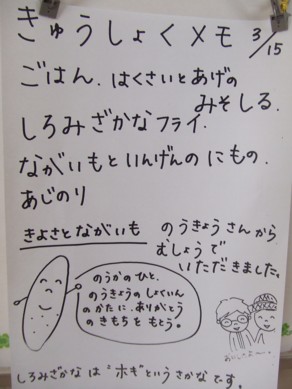 きゅうしょくメモ 3/15
ごはん、はくさいとあげの
みそしる、
しろみざかなフライ、
ながいもといんげんのにもの、
あじのり
きよさとながいも
のうきょうさんから
むしょうで
いただきました。
のうかのひと、
のうきょうのしょくいん
のかたに、ありがとう
のきもちをもとう。
しろみざかなは"ホキ"というさかなです。